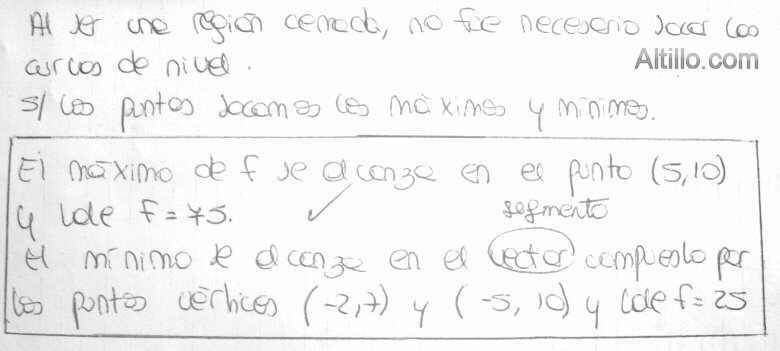 Al ser una región cerrada, no fue necesario sacar las
Altillo.com
curvas de nivel.
s/ los puntos sacamos los máximos y mínimos.
El máximo de f se alcanza en el punto (5,10)
y vale f = 75.
segmento
El mínimo se alcanza en el vector compuesto por
los puntos vértices (-2,7) y (-5, 10) y vale f = 25